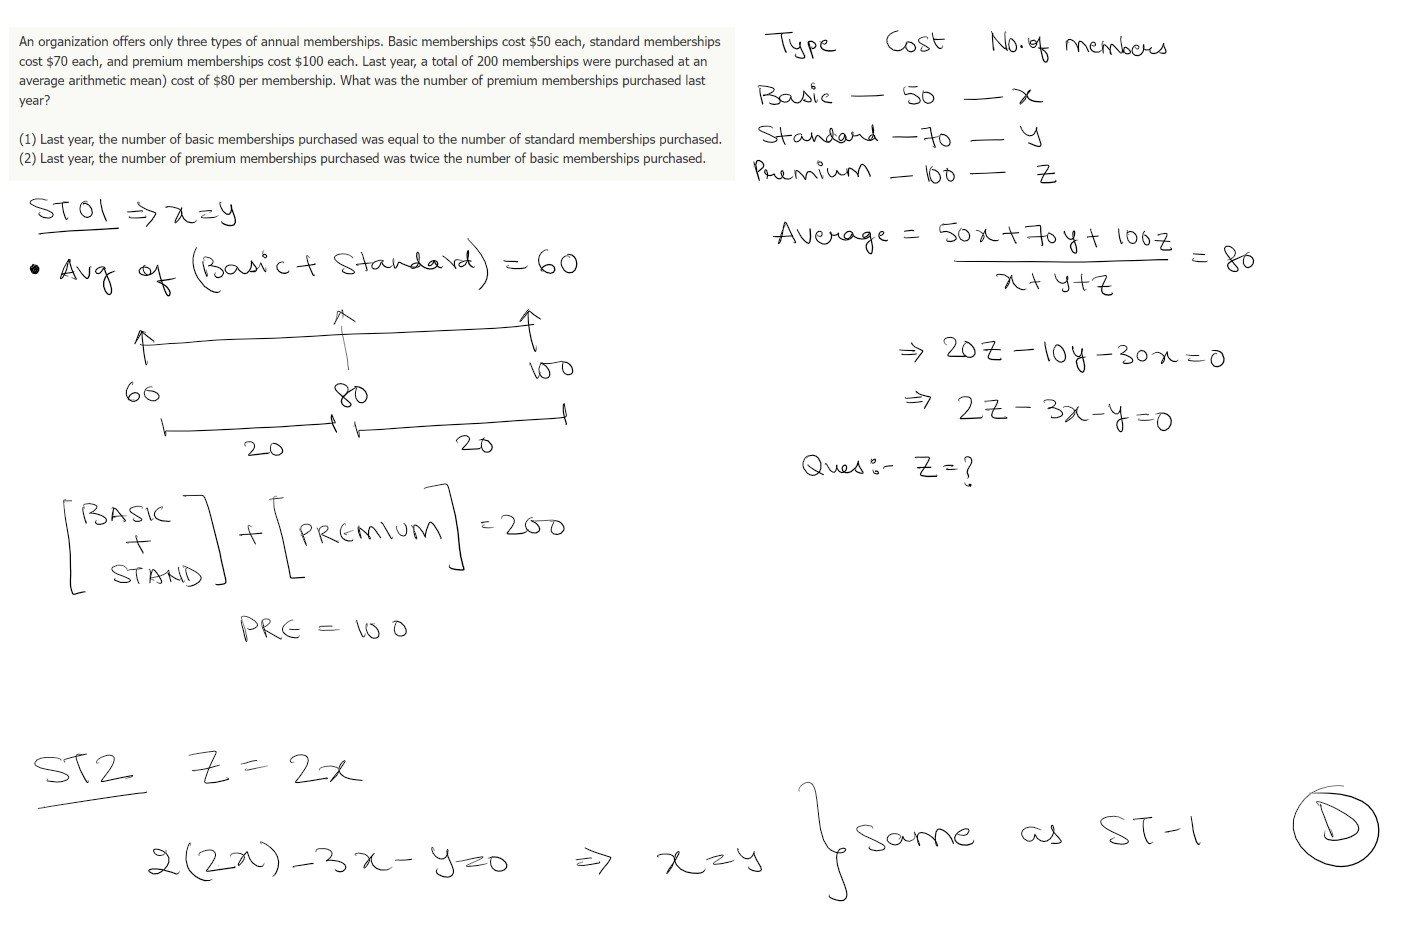 An organization offers only three types of annual memberships. Basic memberships cost $50 each, standard memberships
cost $70 each, and premium memberships cost $100 each. Last year, a total of 200 memberships were purchased at an
average arithmetic mean) cost of $80 per membership. What was the number of premium memberships purchased last
year?
(1) Last year, the number of basic memberships purchased was equal to the number of standard memberships purchased.
(2) Last year, the number of premium memberships purchased was twice the number of basic memberships purchased.
Type Cost No. of members
Basic — 50 — x
Standard — 70 — y
Premium — 100 — z
Average = 50x + 70y + 100z / x + y + z = 80
⇒ 20z - 10y - 30x = 0
⇒ 2z - 3x - y = 0
Ques:- z = ?
STO1 ⇒ x = y
• Avg of (Basic + Standard) = 60
60 80 100
20 20
[BASIC + STAND] + [PREMIUM] = 200
PRE = 100
ST2 z = 2x
2(2x) - 3x - y = 0 ⇒ x = y } Same as ST-1 D